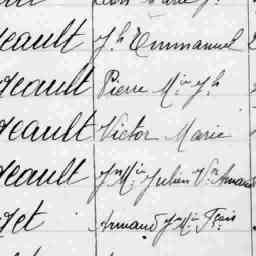 eault Jh Emmanuel
eault Pierre Mie Jh
eault Victor Marie
eault Jn Mie Julien Vr Amand
get Armand Jn Mie Fçois